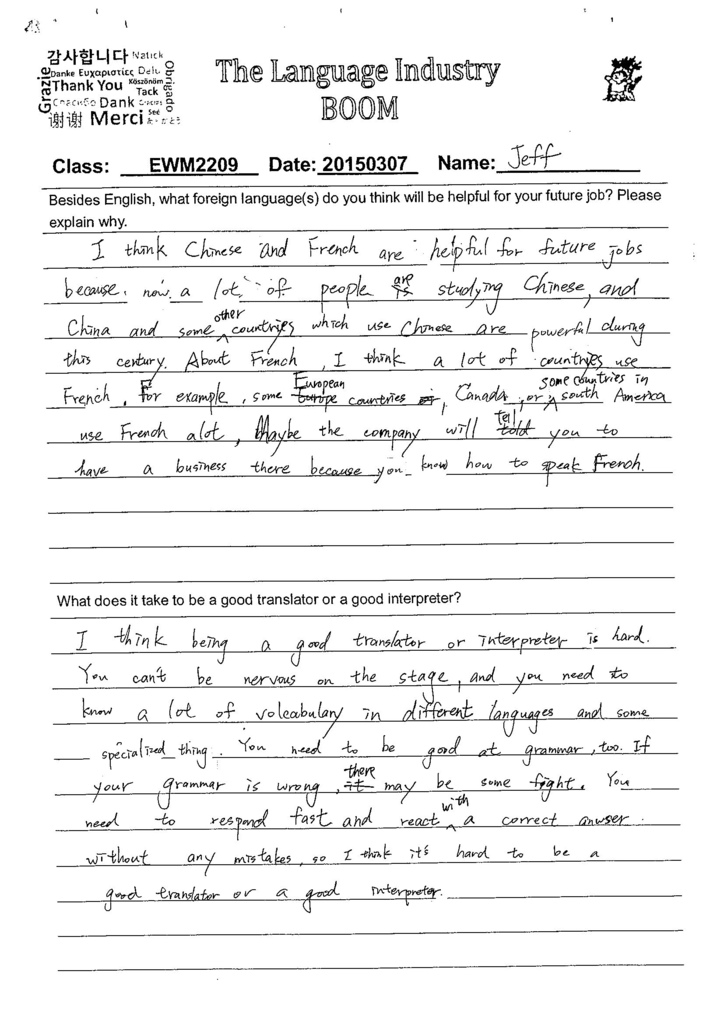 감사합니다 Natick
Grazie Danke Ευχαριστίες Dalu Obrigado
Thank You Köszönöm
Tack
Спасибо Dank
谢谢 Merci See
The Language Industry
BOOM
Class: EWM2209 Date: 20150307 Name: Jeff
Besides English, what foreign language(s) do you think will be helpful for your future job? Please
explain why.
I think Chinese and French are helpful for future jobs
because. now a lot of people are is studying Chinese, and
China and some other countries which use Chinese are powerful during
this century. About French, I think a lot of countries use
French, For example, some European Europe countries or, Canada, or some countries in south America
use French alot, Maybe the company will tell told you to
have a business there because you know how to speak French.
What does it take to be a good translator or a good interpreter?
I think being a good translator or interpreter is hard.
You can't be nervous on the stage, and you need to
know a lot of volcabulary in different languages and some
specialized thing. You need to be good at grammar, too. If
your grammar is wrong, there it may be some fight. You
need to respond fast and react with a correct anwser
without any mistakes, so I think it's hard to be a
good translator or a good interpreter.